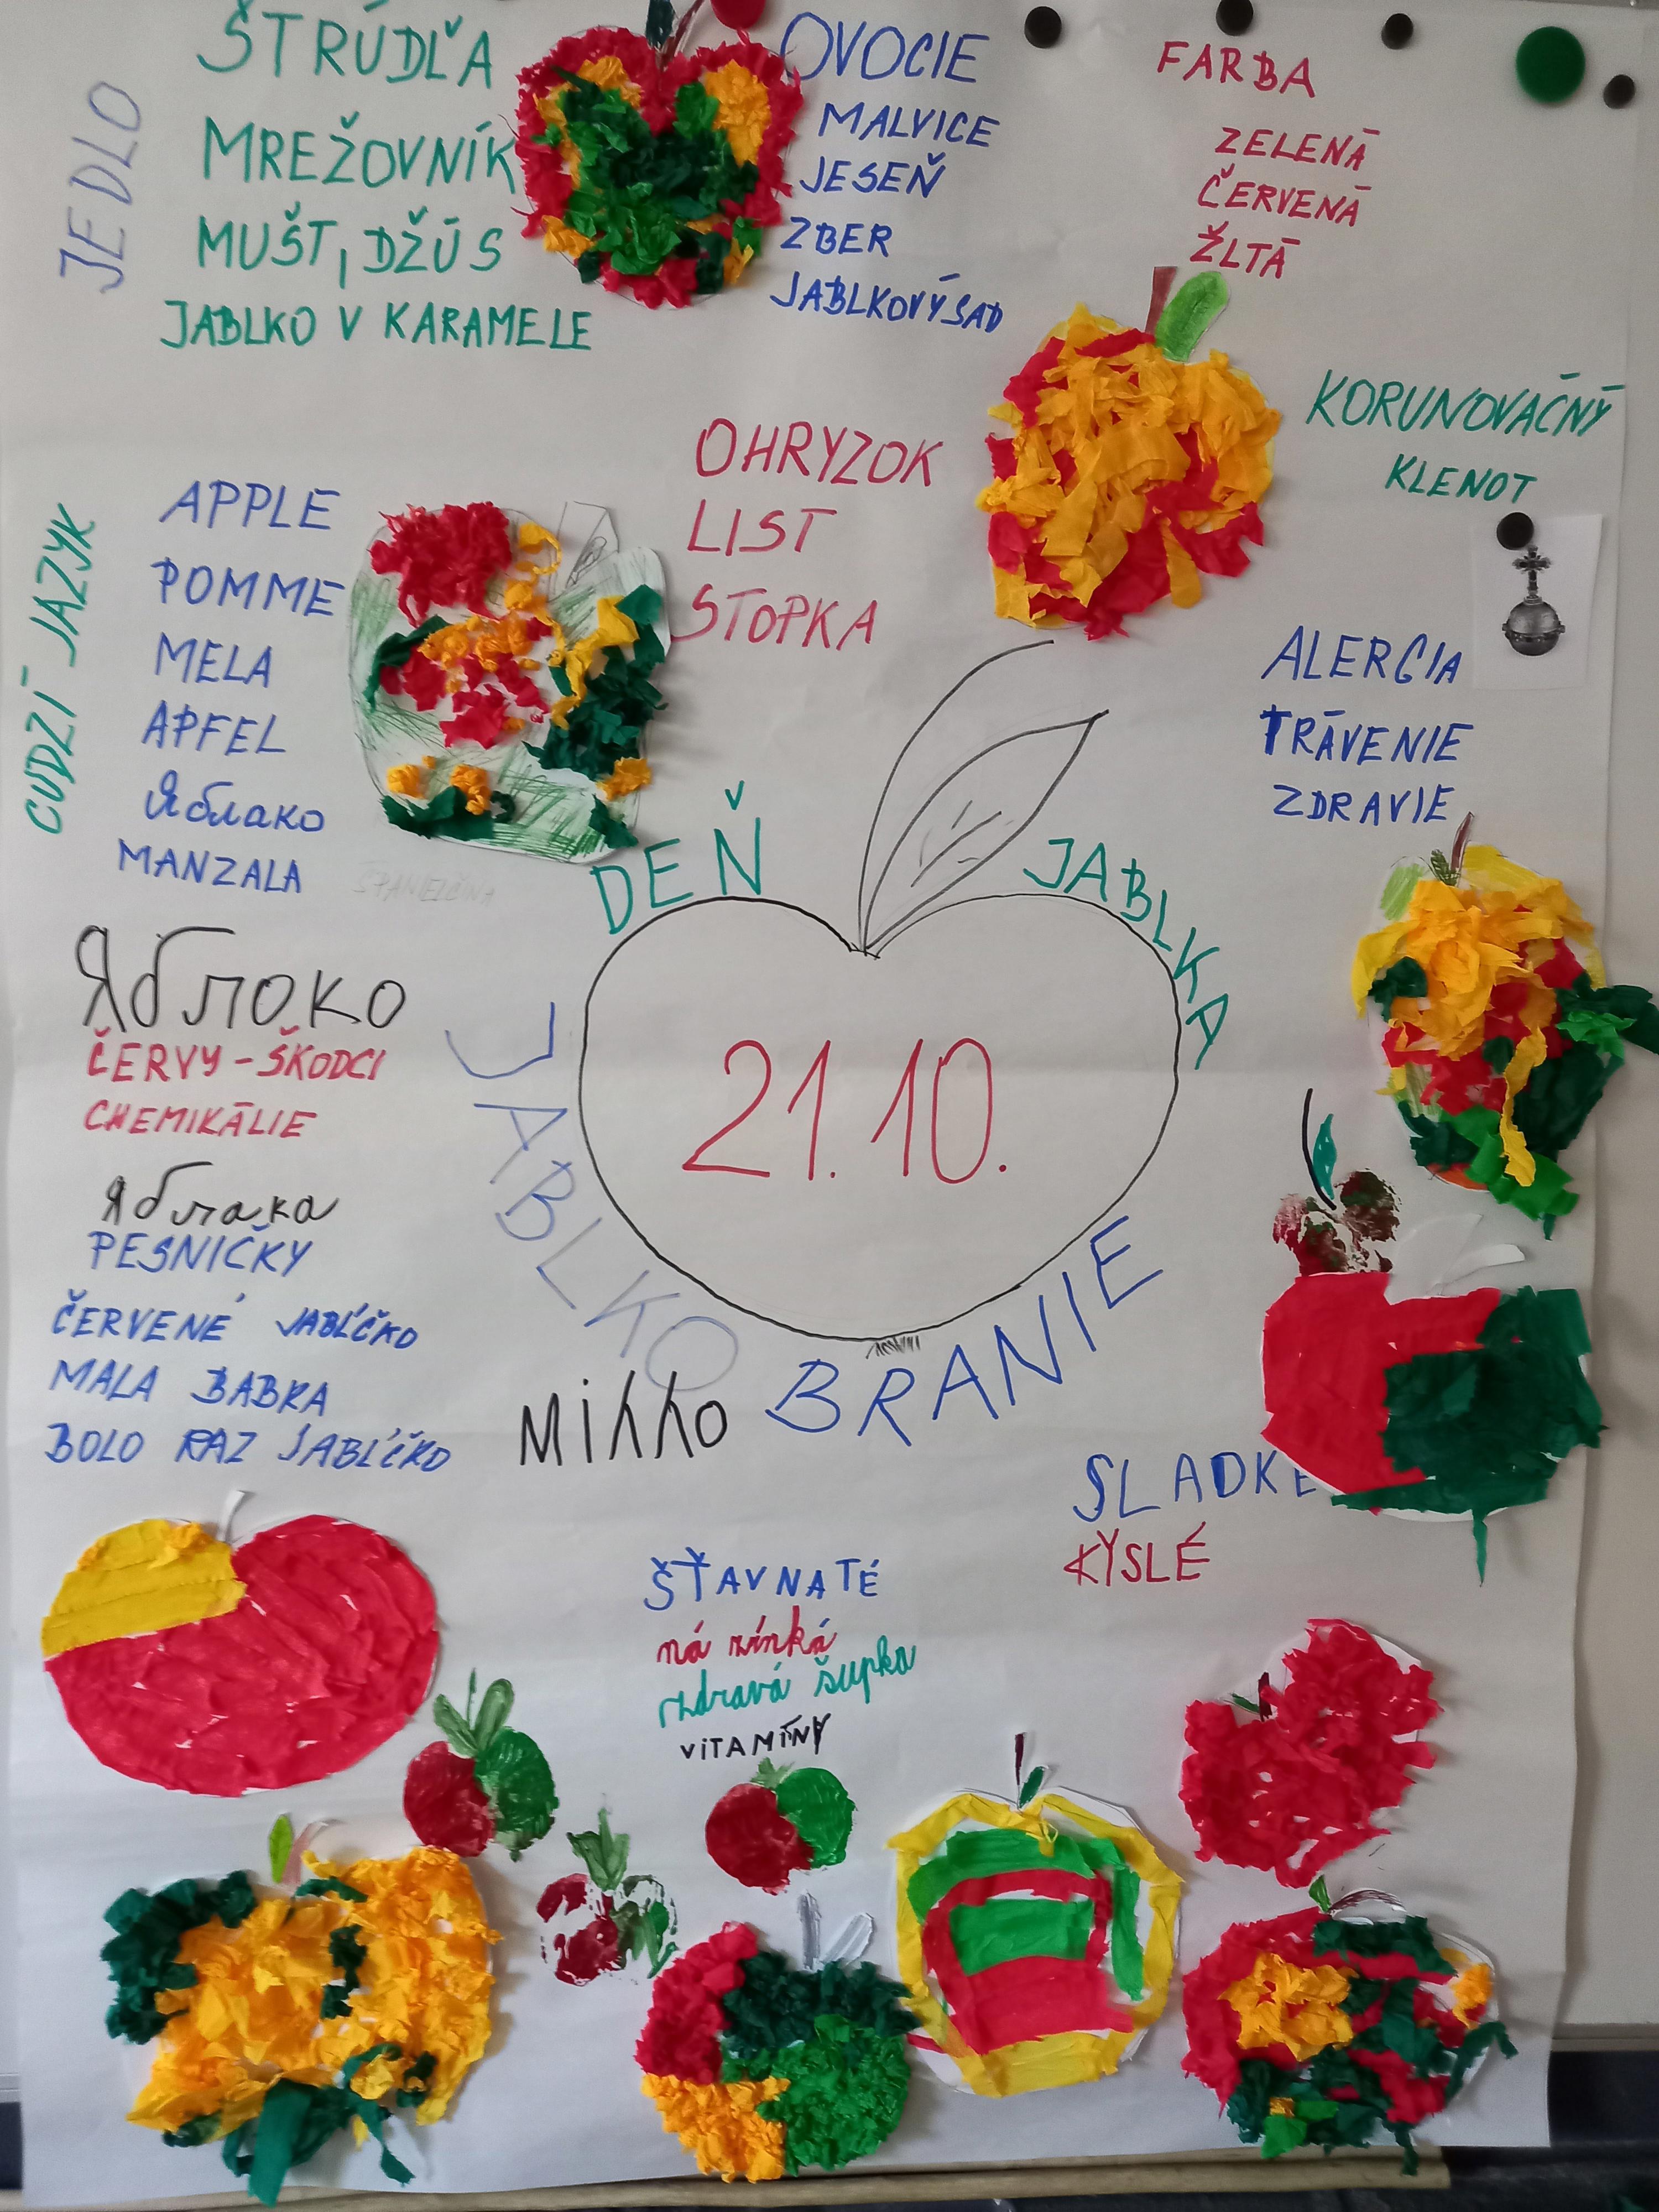 JEDLO
ŠTRÚDĽA
MREŽOVNÍK
MUŠT, DŽÚS
JABLKO V KARAMELE
OVOCIE
MALVICE
JESEŇ
ZBER
JABLKOVÝ SAD
FARBA
ZELENÁ
ČERVENÁ
ŽLTÁ
KORUNOVAČNÝ
KLENOT
OHRYZOK
LIST
STOPKA
CUDZÍ JAZYK
APPLE
POMME
MELA
APFEL
Яблако
MANZALA
ŠPANIELČINA
ALERGIA
TRÁVENIE
ZDRAVIE
DEŇ JABLKA
21.10.
JABLKO
BRANIE
Яблоко
ČERVY - ŠKODCI
CHEMIKÁLIE
Яблака
PESNIČKY
ČERVENÉ JABĹČKO
MALA BABKA
BOLO RAZ JABĹČKO
SLADKÉ
KYSLÉ
ŠŤAVNATÉ
zdravá šupka
VITAMÍNY